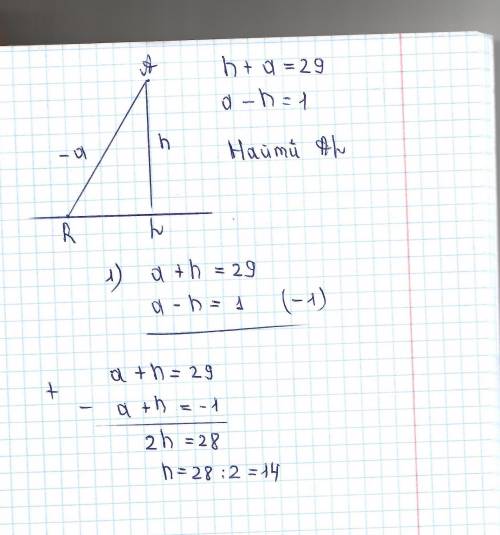 A
h + a = 29
a - h = 1
-a
h
Найти Ah
R
h
1) a + h = 29
a - h = 1 (-1)
+ a + h = 29
- a + h = -1
2h = 28
h = 28 : 2 = 14